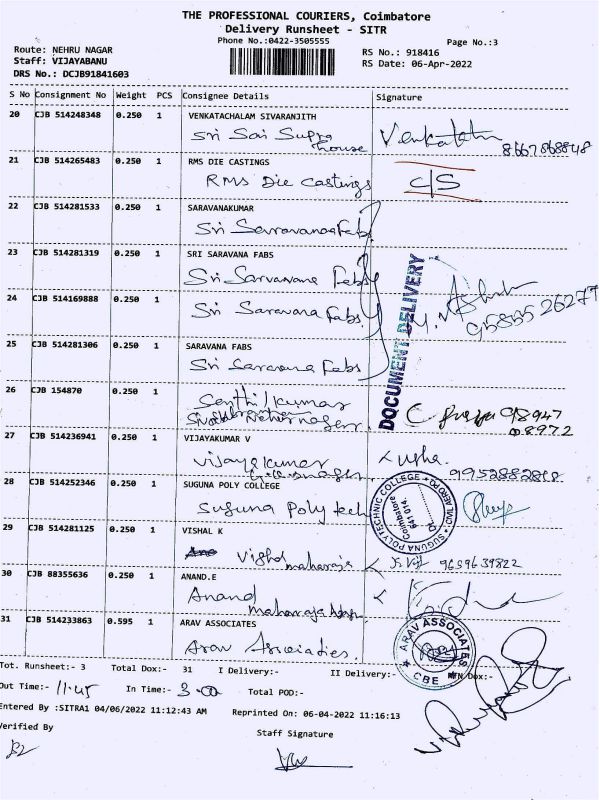 THE PROFESSIONAL COURIERS, Coimbatore
Delivery Runsheet - SITR
Phone No.:0422-3505555
Page No.:3
Route: NEHRU NAGAR
Staff: VIJAYABANU
DRS No.: DCJB91841603
RS No.: 918416
RS Date: 06-Apr-2022
S No Consignment No Weight PCS Consignee Details Signature
20 CJB 514248348 0.250 1 VENKATACHALAM SIVARANJITH
Sri Sai Supra house Venkatesh 8667868848
21 CJB 514265483 0.250 1 RMS DIE CASTINGS
RMS Die Castings C/S
22 CJB 514281533 0.250 1 SARAVANAKUMAR
Sri Saravanaa Fabs
23 CJB 514281319 0.250 1 SRI SARAVANA FABS
Sri Sarvanana Fabs
24 CJB 514169888 0.250 1
Sri Saravana Fabs.
DOCUMENT DELIVERY
25 CJB 514281306 0.250 1 SARAVANA FABS
Sri Saravana Fabs
26 CJB 154870 0.250 1
Senthil kumar
Nehru nagar
98947
08972
27 CJB 514236941 0.250 1 VIJAYAKUMAR V
Vijayakumar Usha
9952882818
28 CJB 514252346 0.250 1 SUGUNA POLY COLLEGE
Suguna Poly tech
SUGUNA POLYTECHNIC COLLEGE
Coimbatore
641 014
29 CJB 514281125 0.250 1 VISHAL K
Vishal maharaja 9659639822
30 CJB 88355636 0.250 1 ANAND.E
Anand
maharaja
31 CJB 514233863 0.595 1 ARAV ASSOCIATES
Arav Associaties
ARAV ASSOCIATES
CBE
Tot. Runsheet:- 3 Total Dox:- 31 I Delivery:- II Delivery:- Dox:-
Out Time:- 11:45 In Time:- 3.00 Total POD:-
Entered By :SITRA1 04/06/2022 11:12:43 AM Reprinted On: 06-04-2022 11:16:13
Verified By
Staff Signature